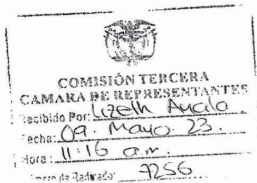 COMISIÓN TERCERA
CAMARA DE REPRESENTANTES
Recibido Por: Lizeth
Fecha: 09. Mayo. 23.
Hora: 11:16 a.m.
Número de Radicado: 7256